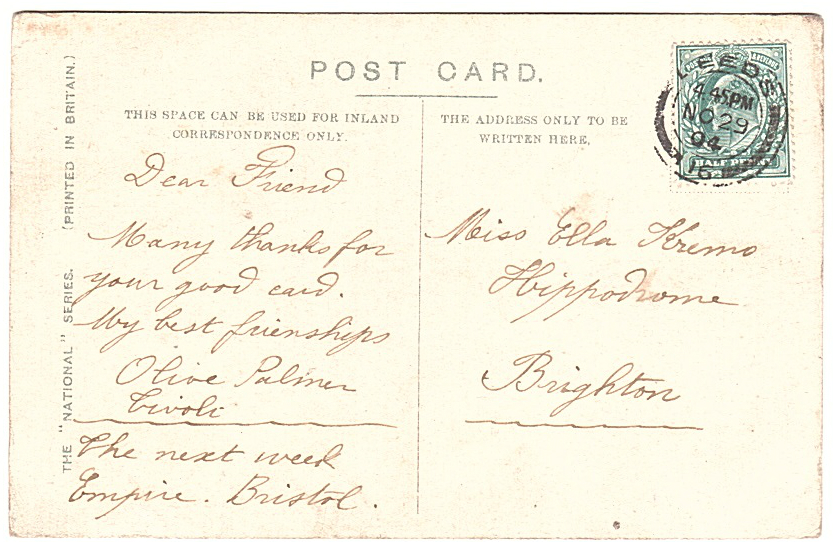 POST CARD.
THIS SPACE CAN BE USED FOR INLAND
CORRESPONDENCE ONLY.
THE ADDRESS ONLY TO BE
WRITTEN HERE,
THE "NATIONAL" SERIES. (PRINTED IN BRITAIN.)
LEEDS
4.45PM
NO 29
04
16
HALF PENNY
Dear Friend
Many thanks for
your good card.
My best frienships
Olive Palmer
Tivoli
The next week
Empire. Bristol.
Miss Ella Kremo
Hippodrome
Brighton